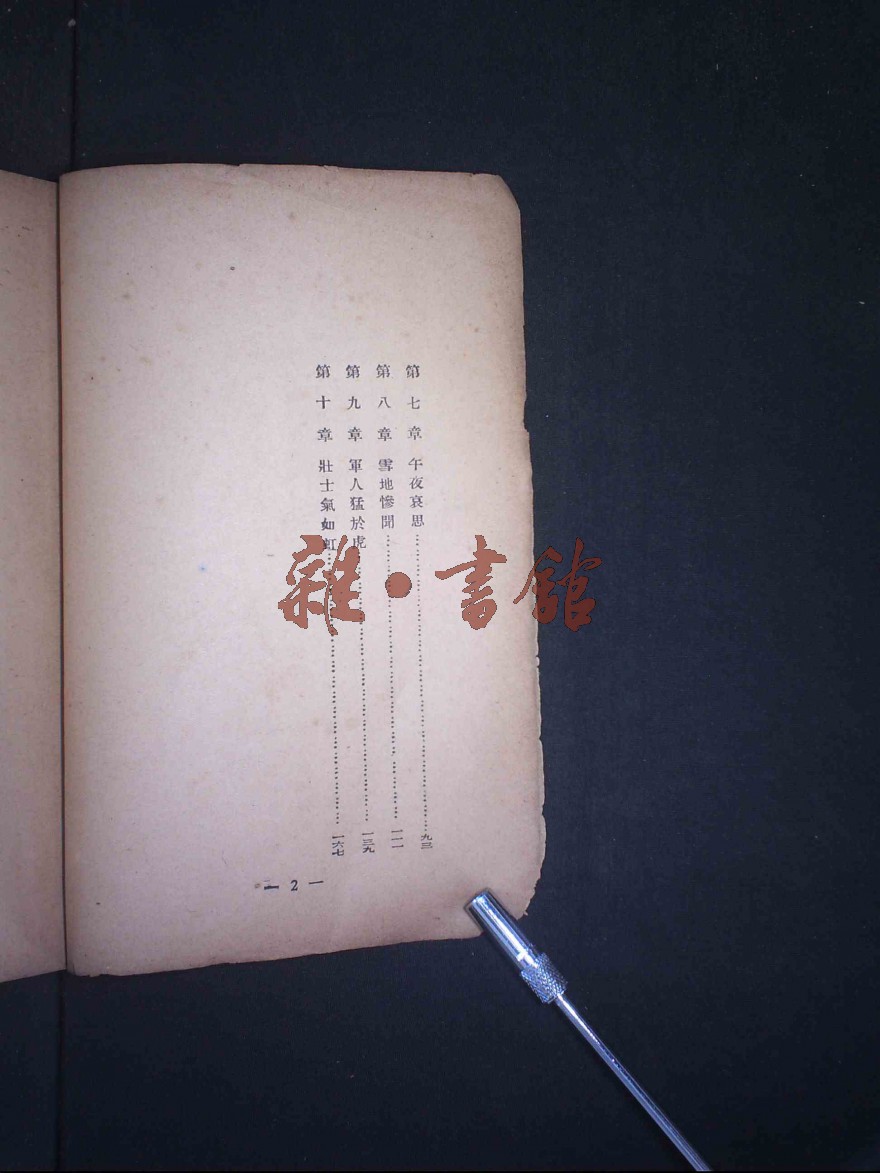 第七章 午夜哀思……九三
第八章 雪地慘聞……一一一
第九章 軍人猛於虎……一三九
第十章 壯士氣如虹……一六七
— 2 —
雜·書館